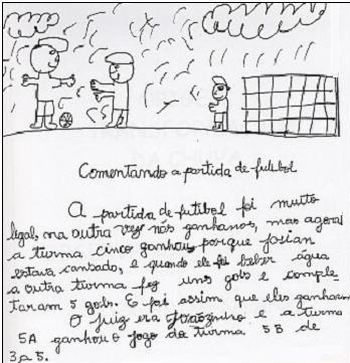 Comentando a partida de futebol
A partida de futibol foi muito
legal, na outra vez nós ganhamos, mas agora
a turma cinco ganhou porque Josian
estava cansado, e quando ele foi beber água
a outra turma fez uns gols e comple
taram 5 gols. E foi assim que eles ganharam
O juiz era Joãozinho e a turma
5A ganhou o jogo da turma 5B de
3 a 5.